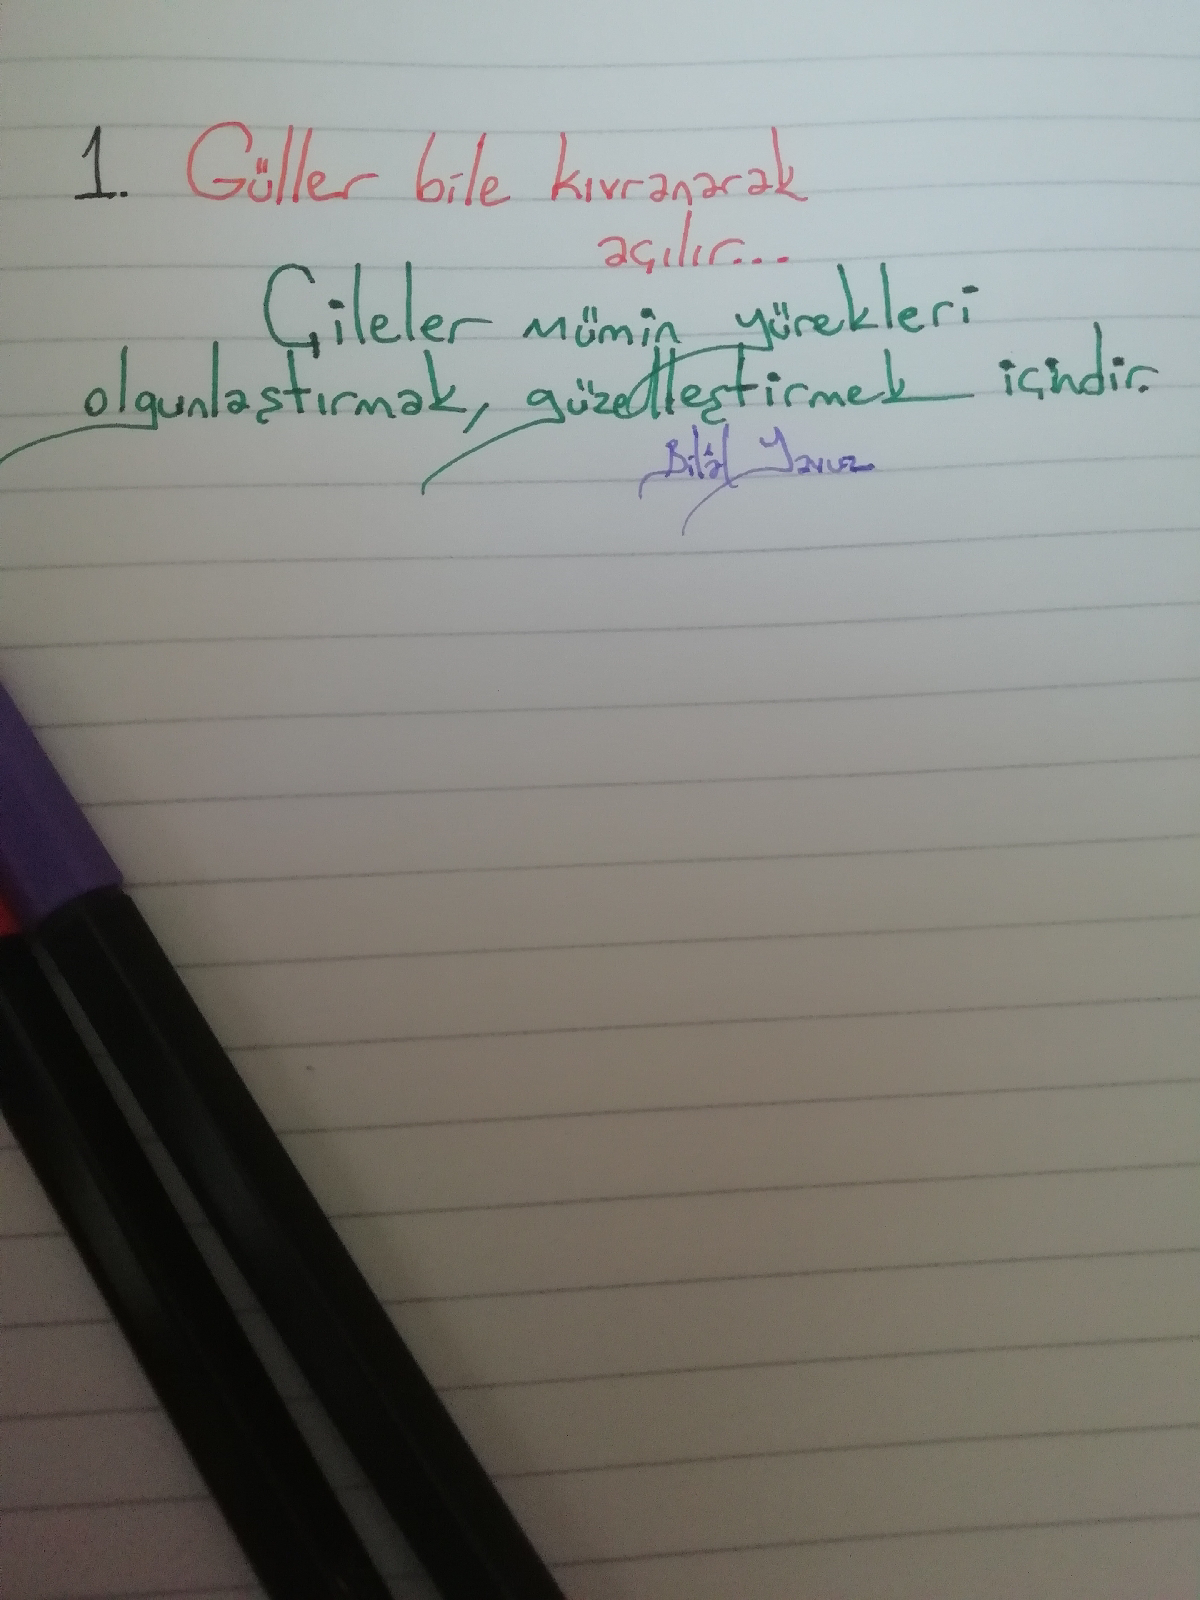 1. Güller bile kıvranarak
açılır...
Çileler mümin yürekleri
olgunlaştırmak, güzelleştirmek içindir.
Bilâl Yavuz